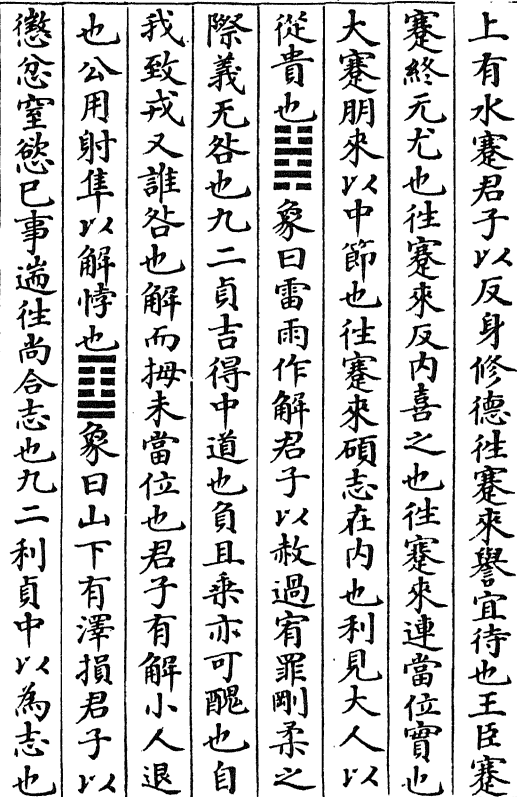 上有水蹇君子以反身修德徃蹇來譽宜待也王臣蹇
蹇終无尤也徃蹇來反内喜之也徃蹇來連當位實也
大蹇朋來以中節也徃蹇來碩志在内也利見大人以
從貴也䷧象曰雷雨作解君子以赦過宥罪剛柔之
際義无咎也九二貞吉得中道也負且乗亦可醜也自
我致戎又誰咎也解而拇未當位也君子有解小人退
也公用射隼以解悖也䷨象曰山下有澤損君子以
懲忿窒慾巳事遄徃尚合志也九二利貞中以為志也